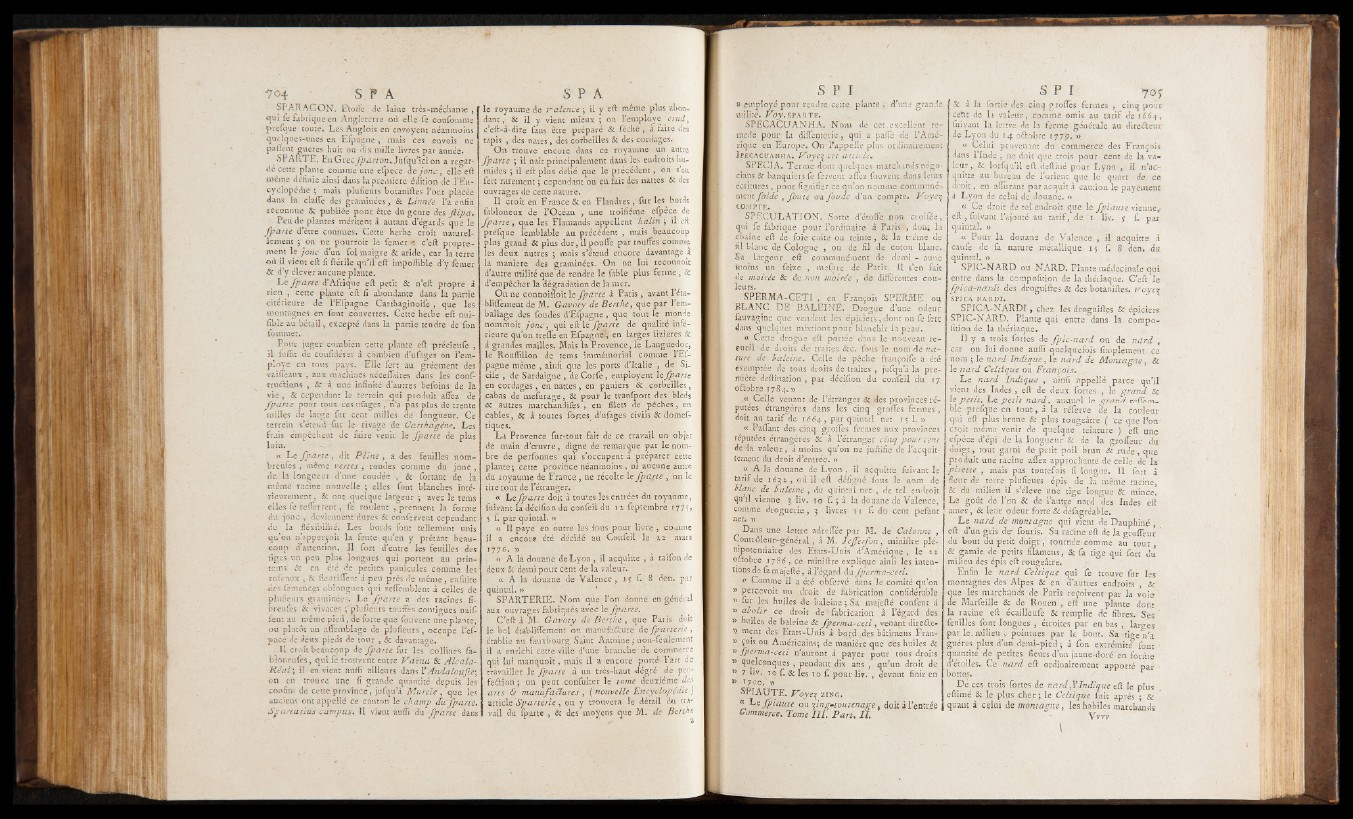 704 S P A
SPARAGON. Etoffe de laine très-méchante,
qui se fabrique en Angleterre où elle se consomme
presque toute. Les Anglois en envoyent néanmoins
quelques-unes en Espagne, mais ces envois ne
passent gueres huit ou dix mille livres par année.
SPARTE. En Grec sparton. Jusqu'ici on a regar-
dé cette plante comme une espece de jonc, elle est
même définie ainsi dans la premiere édition de l'En-
cyclopédie ; mais plusieurs botanistes l'ont placée
dans la classe des graminées, & Linnée l'a enfin
reconnue & publiée pour être du genre des stipa.
Peu de plantes méritent à autant d'égards que le
sparte d'être connues. Cette herbe croît naturel-
lement ; on ne pourroit le semer : c'est propre-
ment le jonc d'un sol maigre & aride, car la terre
où il vient est si stérile qu'il est impossible d'y semer
& d'y élever aucune plante.
Le sparte d'Afrique est petit & n'est propre à
rien , cette plante est si abondante dans la partie
citérieure de l'Espagne Carthaginoise , que les
montagnes en sont couvertes. Cette herbe est nui-
sible au bétail, excepté dans la partie tendre de son
sommet.
Pour juger combien cette plante est précieuse ,
il suffit de considérer à combien d'usages on l'em-
ploye en tous pays. Elle sert au gréement des
vaisseaux , aux machines nécessaires dans les cons-
tructions , & à une infinité d'autres besoins de la
vie, & cependant le terrein qui produit assez de
sparte pour tous ces usages, n'a pas plus de trente
milles de large sur cent milles de longueur. Ce
terrein s'étend sur le rivage de Carthagène. Les
frais empêchent de faire venir le sparte de plus
loin.
« Le sparte , dit Pline , a des feuilles nom-
breuses , même vertes , rondes comme du jonc ,
de la longueur d'une coudée , & sortant de la
même racine nouvelle ; elles sont blanches inté-
rieurement , & ont quelque largeur ; avec le tems
elles se resserrent, se roulent , prennent la forme
du jonc, deviennent dures & conservent cependant
de la flexibilité. Les bords sont tellement unis
qu'on n'apperçoit la fente qu'en y prêtant beau-
coup d'attention. Il sort d'entre les feuilles des
tiges un peu plus longues qui portent au prin-
tems & en été de petites panicules comme les
roseaux , & fleurissent à peu près de même, ensuite
des semences oblongues qui ressemblent à celles de
plusieurs graminées. Le sparte a des racines fi-
breuses & vivaces ; plusieurs touffes contigues nais-
sent au même pied, de sorte que souvent une plante,
ou plutôt un assemblage de plusieurs, occupe l'es-
pace de deux pieds de tour , & davantage.
Il croît beaucoup de sparte sur les collines sa-
blonneuses, qui se trouvent entre Vatna & Alcala-
Réal ; il en vient aussi ailleurs dans l'Andalousie ;
on en trouve une si grande quantité depuis les
confins de cette province, jusqu'à Murcie , que les
anciens ont appellé ce canton le champ du sparte.
Spartarius campus. Il vient aussi du sparte dans
S P A
le royaume de Valence ; il y est même plus abon-
dant , & il y vient mieux ; on l'employe crud,
c'est-à-dire sans être préparé & séché , à faire des
tapis , des nates, des corbeilles & des cordages.
On trouve encore dans ce royaume un autre
sparte ; il naît principalement dans les endroits hu-
mides ; il est plus délié que le précédent , on s'en
sert rarement ; cependant on en fait des nattes & des
ouvrages de cette nature.
Il croît en France & en Flandres, sur les bords
sabloneux de l'Océan , une troisième espèce de
sparte, que les Flamands appellent helin ; il est
presque semblable au précédent , mais beaucoup
plus grand & plus dur, il pousse par touffes comme
les deux autres ; mais s'étend encore davantage à
la maniere des graminées. On ne lui reconnoît
d'autre utilité que de rendre le sable plus ferme, &
d'empêcher la dégradation de la mer.
On ne connoissoit le sparte à Paris, avant l'éta-
blissement de M. Gavoty de Berthe, que par l'em-
ballage des soudes d'Espagne, que tout le monde
nommoit jonc, qui est le sparte de qualité infé-
rieure qu'on tresse en Espagne, en larges lizieres &
à grandes mailles. Mais la Provence, le Languedoc,
le Roussillon de tems immémorial comme l'Es-
pagne même , ainsi que les ports d'Italie , de Si-
cile , de Sardaigne , de Corse, employent le sparte
en cordages, en nattes, en paniers & corbeilles ,
cabas de mesurage, & pour le transport des bleds
& autres marchandises , en filets de pêches, en
cables, & à toutes sortes d'usages civils & domes-
tiques.
La Provence sur-tout fait de ce travail un objet
de main d'œuvre , digne de remarque par le nom-
bre de personnes qui s'occupent à préparer cette
plante ; cette province néanmoins , ni aucune autre
du royaume de France , ne récolte le sparte , on le
tire tout de l'étranger.
« Le sparte doit à toutes les entrées du royaume,
suivant la décision du conseil du 12 septembre 1775,
5 s. par quintal. »
« Il paye en outre les sous pour livre, comme
il a encore été décidé au Conseil le 22 mars
1776. »
« A la douane de Lyon , il acquitte , à raison de
deux & demi pour cent de la valeur.
« A la douane de Valence , 15 s. 8 den. par
quintal. »
SPARTERIE. Nom que l'on donne en général
aux ouvrages fabriqués avec le sparte.
C'est à M. Gavoty de Berthe , que Paris doit
le bel établissement ou manufacture de sparterie ,
établie au fauxbourg Saint Antoine ; non-seulement
il a enrichi cette ville d'une branche de commerce
qui lui manquoit, mais il a encore porté l'art de
travailler le sparte à un très-haut dégré de per-
fection ; on peut consulter le tome deuxième des
arts & manufactures , ( nouvelle Encyclopédie )
article Sparterie , on y trouvera le détail du tra-
vail du sparte , & des moyens que M. de Berthe
a
S P I
» employé pour rendre cette plante , d'une grande
utilité. Voy. SPARTE.
SPECACUANHA. Nom de cet excellent re-
mede pour la dissenterie, qui a passé de l'Amé-
rique en Europe. On l'appelle plus ordinairement
IPECACUANHA. Voyez cet article.
SPECIA. Terme dont quelques marchands négo-
cians & banquiers se servent assez souvent dans leurs
écritures, pour signifier ce qu'on nomme communé-
ment solde , soute ou soude d'un compte. Voyez
COMPTE.
SPECULATION. Sorte d'étoffe non croisée,
qui se fabrique pour l'ordinaire à Paris, dont la
chaîne est de soie cuite ou teinte, & la trême de
fil blanc de Cologne , ou de fil de coton blanc.
Sa largeur est communément de demi - aune
moins un seize , mesure de Paris. Il s'en fait
de moirée & de non moirée , de différentes cou-
leurs.
SPERMA-CETI , en François SPERME ou
BLANC DE BALEINE. Drogue d'une odeur
sauvagine que vendent les épiciers, dont on se sert
dans quelques mixtions pour blanchir la peau.
« Cette drogue est portée dans le nouveau re-
cueil de droits de traites &c. sous le nom de na-
ture de baleine. Celle de pêche françoise a été
exemptée de tous droits de traites , jusqu'à la pre-
mière destination , par décision du conseil du 17
octobre 1784. »
« Celle venant de l'étranger & des provinces ré-
putées étrangères dans les cinq grosses fermes,
doit au tarif de 1664 , par quintal net 15 l. »
« Passant des cinq grosses fermes aux provinces
réputées étrangères & à l'étranger cinq pour cent
de la valeur, à moins qu'on ne justifie de l'acquit-
tement du droit d'entrée. »
« A la douane de Lyon , il acquitte suivant le
tarif de 1632 , où il est désigné sous le nom de
blanc de baleine , du quintal net , de tel endroit
qu'il vienne 3 liv. 10 s. ; à la douane de Valence,
comme droguerie, 3 livres 11 s. du cent pesant
net. »
Dans une lettre adressée par M. de Calonne ,
Contrôleur-général, à M. Jefferson, ministre plé-
nipotentiaire des Etats-Unis d'Amérique , le 22
octobre 1786, ce ministre explique ainsi les inten-
tions de sa majesté, à l'égard du sperma-ceti.
« Comme il a été observé dans le comité qu'on
» percevoit un droit de fabrication considérable
» sur les huiles de baleine ; Sa majesté consent à
» abolir ce droit de fabrication à l'égard des
» huiles de baleine & sperma-ceti , venant directe-
» ment des Etats-Unis à bord des bâtimens Fran-
» çois ou Américains; de manière que ces huiles &
» sperma-ceti n'auront à payer pour tous droits
» quelconques , pendant dix ans , qu'un droit de
» 7 liv. 10 s. & les 10 s. pour liv. , devant finir en
» 1790. »
SPIAUTE. Voyez ZINC.
« Le spiaute ou zing-toutenage, doit à l'entrée
Commerce. Tome III. Part. II.
S P I 705
& à la sortie des cinq grosses fermes , cinq pour
cent de la valeur, comme omis au tarif de 1664,
suivant la lettre de la ferme générale au directeur
de Lyon du 14 octobre 1779. »
« Celui provenant du commerce des François
dans l'Inde, ne doit que trois pour cent de la va-
leur, & lorsqu'il est destiné pour Lyon , il n'ac-
quitte au bureau de l'orient que le quart de ce
droit , en assurant par acquit à caution le payement
à Lyon de celui de douane. »
« Ce droit de tel endroit que le spiaute vienne,
est, suivant l'ajouté au tarif, de 1 liv. 5 s. par
quintal. »
« Pour la douane de Valence , il acquitte à
cause de sa nature métallique 15 s. 8 den. du
quintal. »
SPIC-NARD ou NARD. Plante médecinale qui
entre dans la composition de la thériaque. C'est le
spica-nardi des droguistes & des botanistes. Voyez
SPICA NARDI.
SPICA-NARDI , chez les droguistes & épiciers
SPIC-NARD. Plante qui entre dans la compo-
sition de la thériaque.
Il y a trois sortes de spic-nard ou de nard ,
car on lui donne aussi quelquefois simplement ce
nom ; le nard Indique, le nard de Montagne, &
le nard Celtique ou François.
Le nard Indique , ainsi appellé parce qu'il
vient des Indes , est de deux sortes , le grand &
le petit. Le petit nard, auquel le grand ressem-
ble presque en tout, à la réserve de la couleur
qui est plus brune & plus rougeâtre ( ce que l'on
croit même venir de quelque teinture ) est une
espèce d'épi de la longueur & de la grosseur du
doigt, tout garni de petit poil brun & rude, que
produit une racine assez approchante de celle de la
pirette , mais pas toutefois si longue. Il sort à
fleur de terre plusieurs épis de la même racine,
& du milieu il s'éleve une tige longue & mince.
Le goût de l'un & de l'autre nard des Indes est
amer, & leur odeur forte & désagréable.
Le nard de montagne qui vient de Dauphiné ,
est d'un gris de souris. Sa racine est de la grosseur
du bout du petit doigt, tournée comme au tour,
& garnie de petits filamens, & sa tige qui sort du
milieu des épis est rougeâtre.
Enfin le nard Celtique qui se trouve sur les
montagnes des Alpes & en d'autres endroits , &
que les marchands de Paris reçoivent par la voie
de Marseille & de Rouen , est une plante dont
la racine est écailleuse & remplie de fibres. Ses
feuilles sont longues , étroites par en bas , larges
par le milieu, pointues par le bout. Sa tige n'a
guères plus d'un demi-pied ; à son extrémité sont
quantité de petites fleurs d'un jaune-doré en forme
d'étoiles. Ce nard est ordinairement apporté par
bottes.
De ces trois sortes de nard, l'Indique est le plus
estimé & le plus cher ; le Celtique suit après ; &
quant à celui de montagne, les habiles marchands
Vvvv